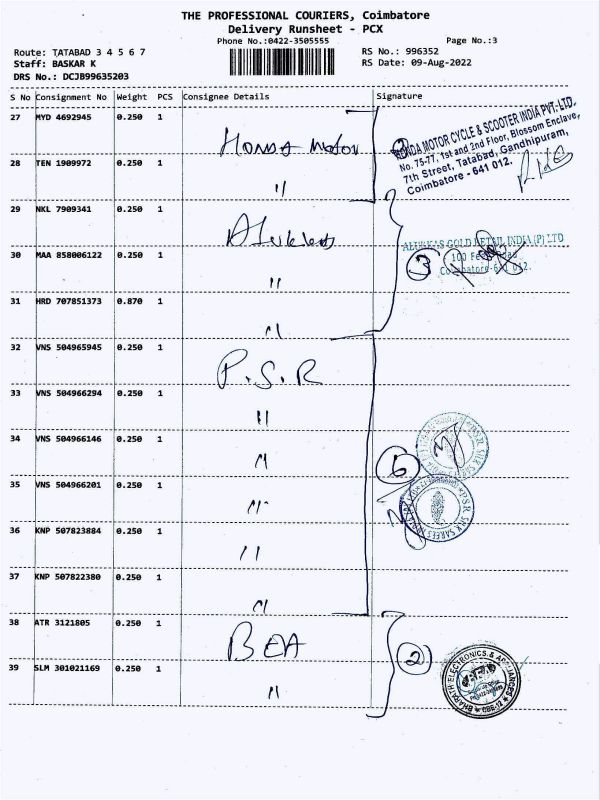 THE PROFESSIONAL COURIERS, Coimbatore
Delivery Runsheet - PCX
Phone No.:0422-3505555
Page No.:3
Route: TATABAD 3 4 5 6 7
Staff: BASKAR K
DRS No.: DCJB99635203
RS No.: 996352
RS Date: 09-Aug-2022
S No Consignment No Weight PCS Consignee Details Signature
27 MYD 4692945 0.250 1 Honda Motor
HONDA MOTOR CYCLE & SCOOTER INDIA PVT. LTD.
No. 75-77, 1st and 2nd Floor, Blossom Enclave,
7th Street, Tatabad, Gandhipuram,
Coimbatore - 641 012.
28 TEN 1909972 0.250 1 "
29 NKL 7909341 0.250 1 Alukkas
ALUKKAS GOLD RETAIL INDIA (P) LTD
100 Feet Road
Coimbatore-641 012.
3
30 MAA 858006122 0.250 1 "
31 HRD 707851373 0.870 1 "
32 VNS 504965945 0.250 1 P.S.R
33 VNS 504966294 0.250 1 "
34 VNS 504966146 0.250 1 "
35 VNS 504966201 0.250 1 "
PSR SILK SAREES
36 KNP 507823884 0.250 1 "
37 KNP 507822380 0.250 1 "
38 ATR 3121805 0.250 1 BEA
2
39 SLM 301021169 0.250 1 "
BHARATH ELECTRONICS & APPLIANCES
CBE-12